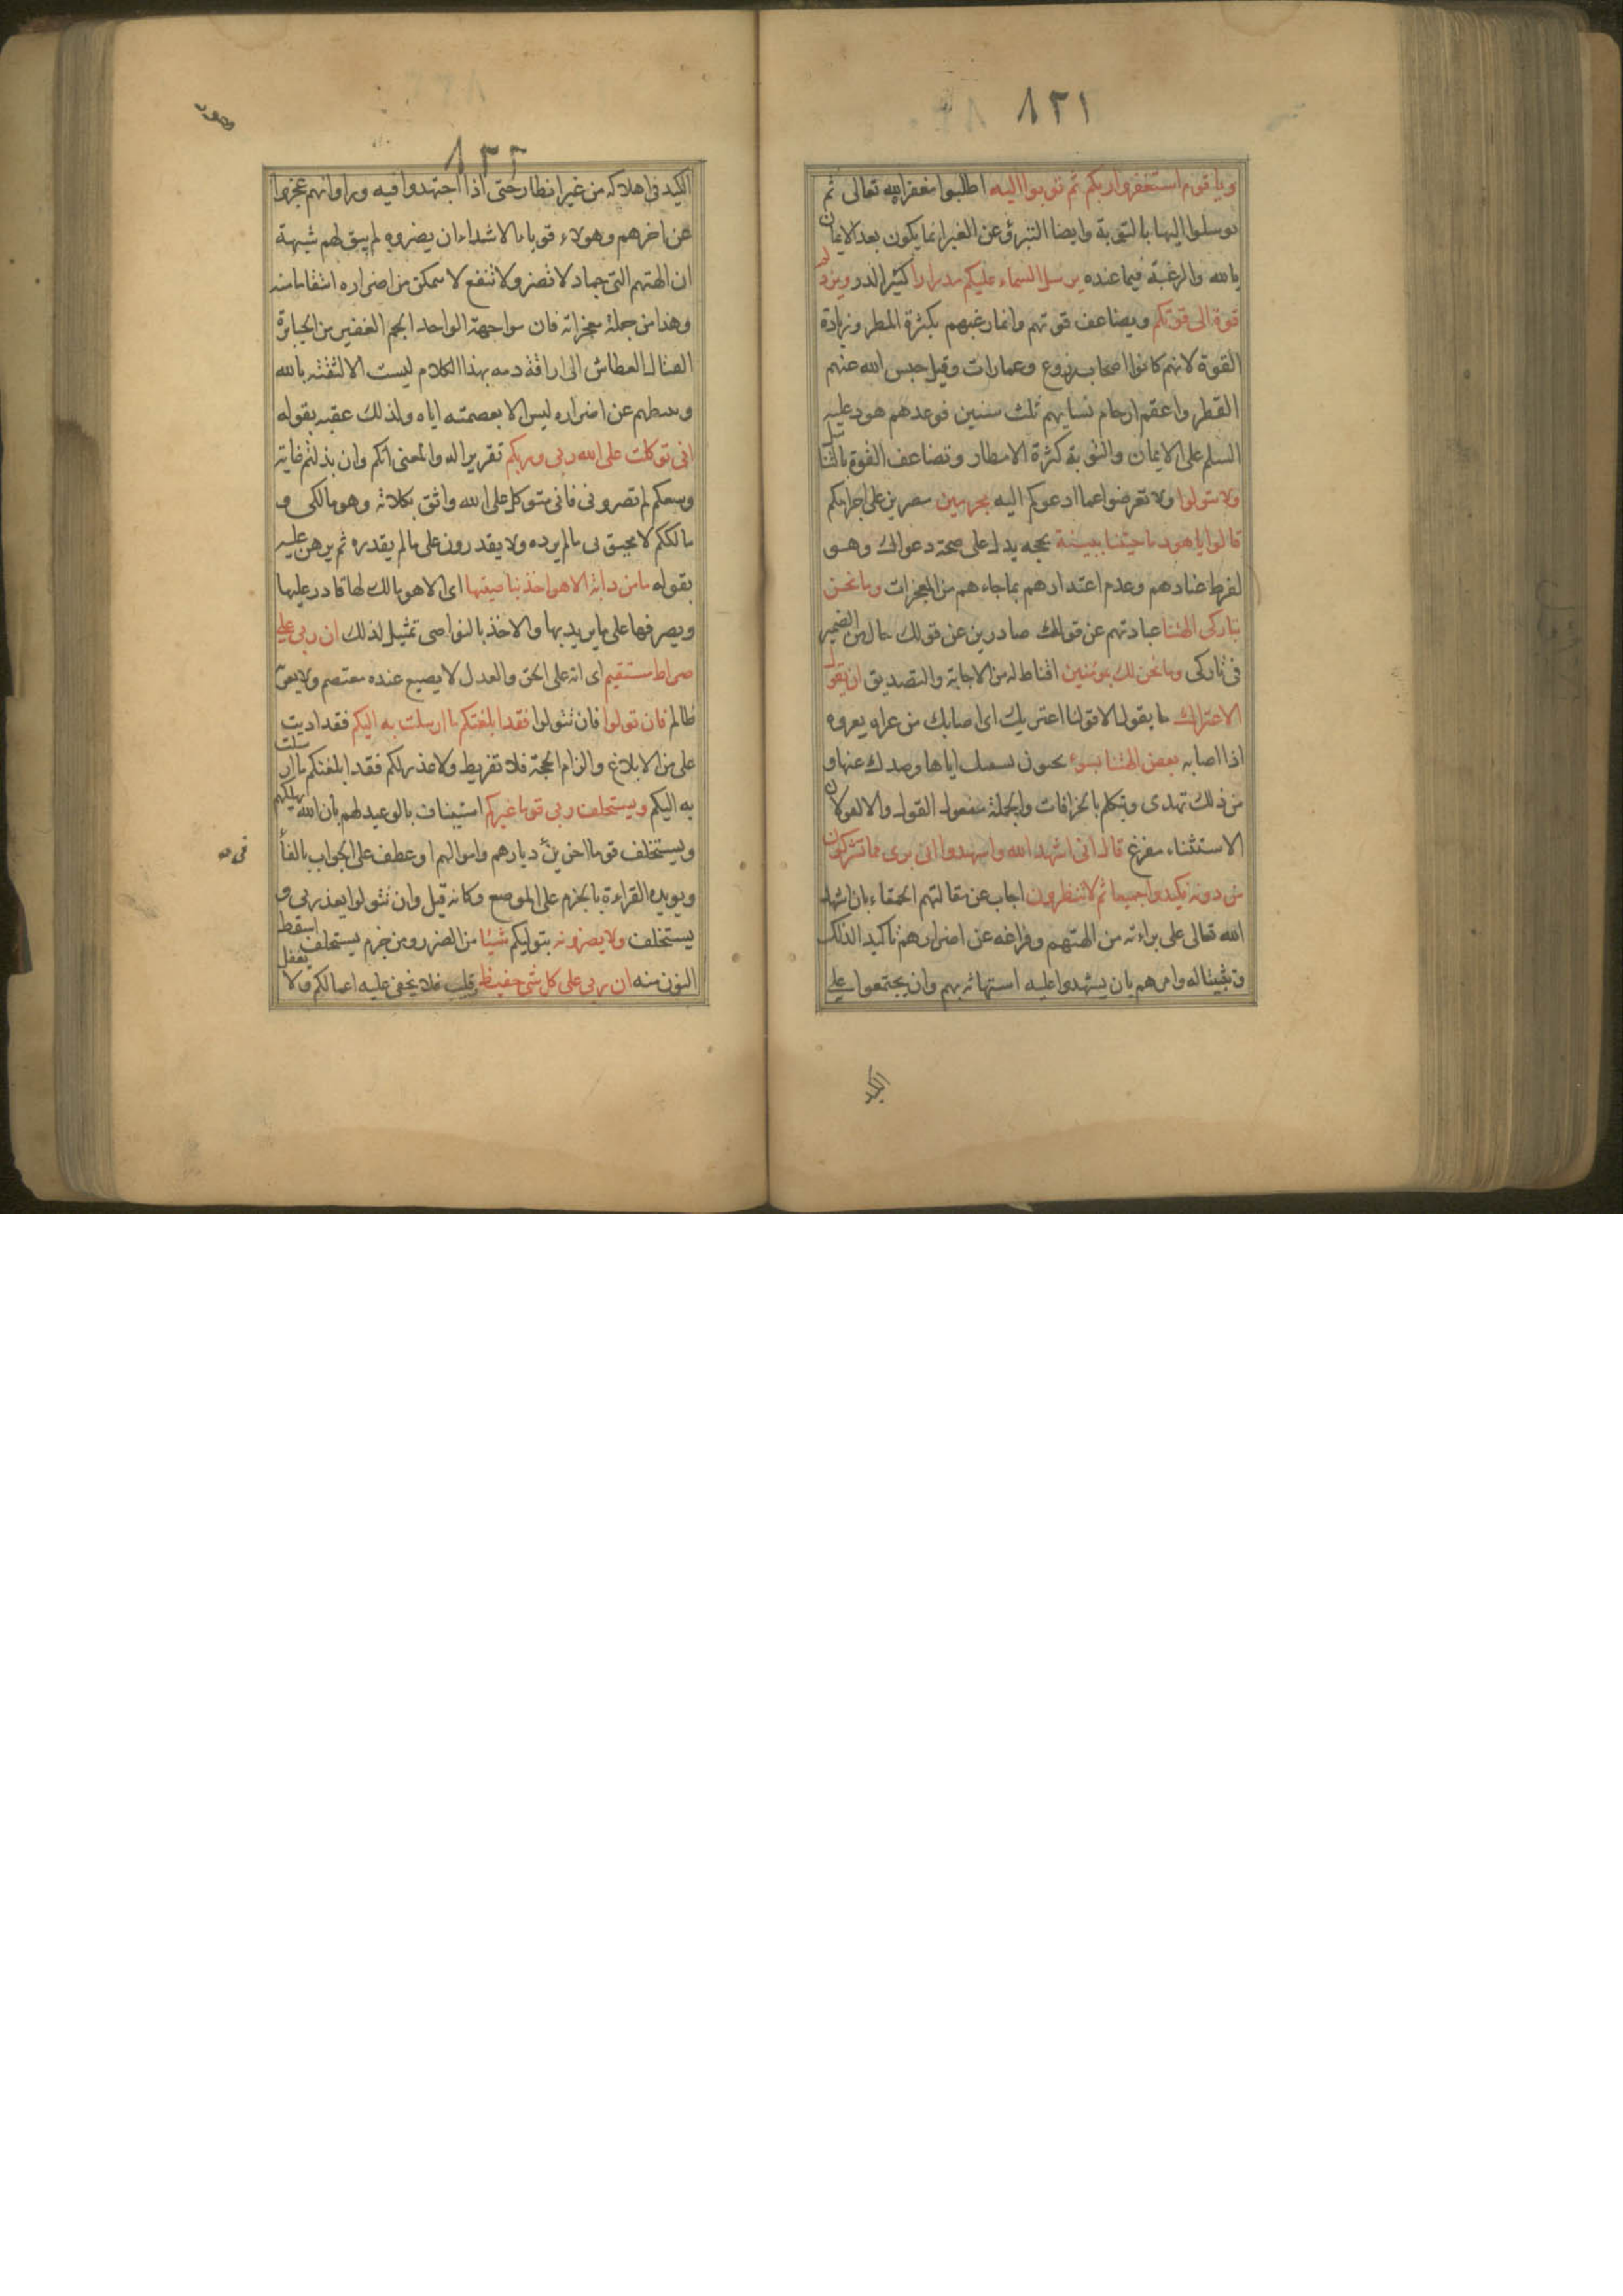 ٨٢١
ويا قوم استغفروا ربكم ثم توبوا اليه اطلبوا مغفرة الله تعالى ثم
توسلوا اليها بالتوبة وايضا التبرؤ عن الغير انما يكون بعد الايمان
بالله والرغبة فيما عنده يرسل السماء عليكم مدرارا كثير الدر ويزدكم
قوة الى قوتكم ويضاعف قوتهم وانما رغبهم بكثرة المطر وزيادة
القوة لانهم كانوا اصحاب زروع وعمارات وقيل حبس الله عنهم
القطر واعقم ارحام نسايهم ثلث سنين فوعدهم هود عليه
السلم على الايمان والتوبة كثرة الامطار وتضاعف القوة بالتناسل
ولا تتولوا ولا تعرضوا عما ادعوكم اليه مجرمين مصرين على اجرامكم
قالوا يا هود ما جيتنا ببينة بحجه يدل على صحة دعواك وهو
لفرط عنادهم وعدم اعتدادهم بما جاءهم من المعجزات وما نحن
بتاركى الهتنا عبادتهم عن قولك صادرين عن قولك حال من الضمير
فى تاركى وما نحن لك بمؤمنين اقناط له من الاجابة والتصديق ان نقول
الا اعتراك ما نقول الا قولنا اعتريك اى اصابك من عراه يعروه
اذا اصابه بعض الهتنا بسوء بجنون لسبك اياها وصدك عنها و
من ذلك تهذى وتتكلم بالخرافات والجملة مفعول القول والا لغو لان
الاستثناء مفرغ قال انى اشهد الله واشهدوا انى برى مما تشركون
من دونه فكيدوا جميعا ثم لا تنظرون اجاب عن مقالتهم الحمقاء بان اشهد
الله تعالى على براءته من الهتهم وفراغه عن اضرارهم تاكيدا لذلك
وتثبيتا له وامرهم بان يشهدوا عليه استهانة بهم وان يجتمعوا على
الكيد
هود
٨٢٢
الكيد فى اهلاكه من غير انظار حتى اذا اجتهدوا فيه وراوا انهم عجزوا
عن اخرهم وهولاء قوياء الاشداء ان يضروه لم يبق لهم شبهة
ان الهتهم التى جماد لا تضر ولا تنفع لا تتمكن من اضراره انتقاما منه
وهذا من جملة معجزاته فان مواجهة الواحد الجم الغفير من الجبابرة
الفتاك العطاش الى اراقة دمه بهذا الكلام ليست الا لثقته بالله
وتثبطهم عن اضراره ليس الا بعصمته اياه ولذلك عقبه بقوله
انى توكلت على الله ربى وربكم تقريرا له والمعنى انكم وان بذلتم غاية
وسعكم لم تضرونى فانى متوكل على الله واثق بكلاته وهو مالكى و
مالككم لا يحيق بى ما لم يرده ولا يقدرون على ما لم يقدره ثم برهن عليه
بقوله ما من دابة الا هو اخذ بناصيتها اى الا هو مالك لها قادر عليها
ويصرفها على ما يريد بها والاخذ بالنواصى تمثيل لذلك ان ربى على
صراط مستقيم اى انه على الحق والعدل لا يضيع عنده معتصم ولا يفوته
ظالم فان تولوا فان تتولوا فقد ابلغتكم ما ارسلت به اليكم فقد اديت
على من الابلاغ والزام الحجة فلا تفريط ولا عذر لكم فقد ابلغتكم ما ارسلت
به اليكم ويستخلف ربى قوما غيركم استيناف بالوعيد لهم بان الله يهلكهم
ويستخلف قوما اخرين ديارهم واموالهم او عطف على الجواب بالفاء
فى صح
ويويده القراءة بالجزم على الموضع وكانه قيل وان تتولوا يعذر بى و
يستخلف ولا يضرونه بتوليكم شيئا من الضرر ومن جزم يستخلف اسقط
النون منه ان ربى على كل شى حفيظ رقيب فلا يخفى عليه اعمالكم ولا يغفل